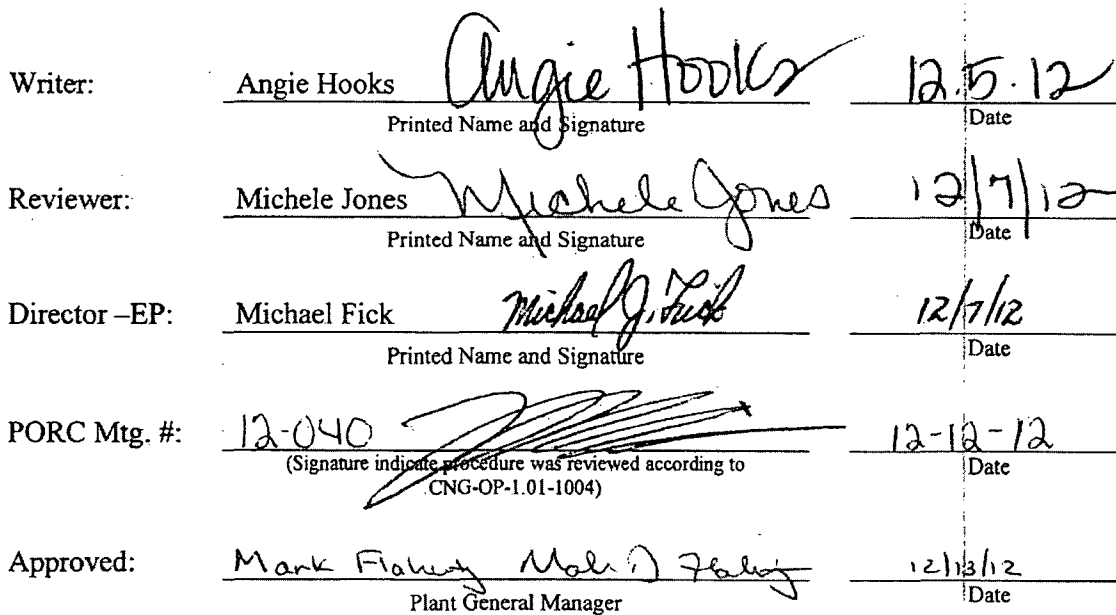 Writer: Angie Hooks Angie Hooks 12.5.12
Printed Name and Signature Date
Reviewer: Michele Jones Michele Jones 12/7/12
Printed Name and Signature Date
Director –EP: Michael Fick Michael J. Fick 12/7/12
Printed Name and Signature Date
PORC Mtg. #: 12-040 12-12-12
(Signature indicate procedure was reviewed according to Date
CNG-OP-1.01-1004)
Approved: Mark Flaherty Mark D Flaherty 12/13/12
Plant General Manager Date